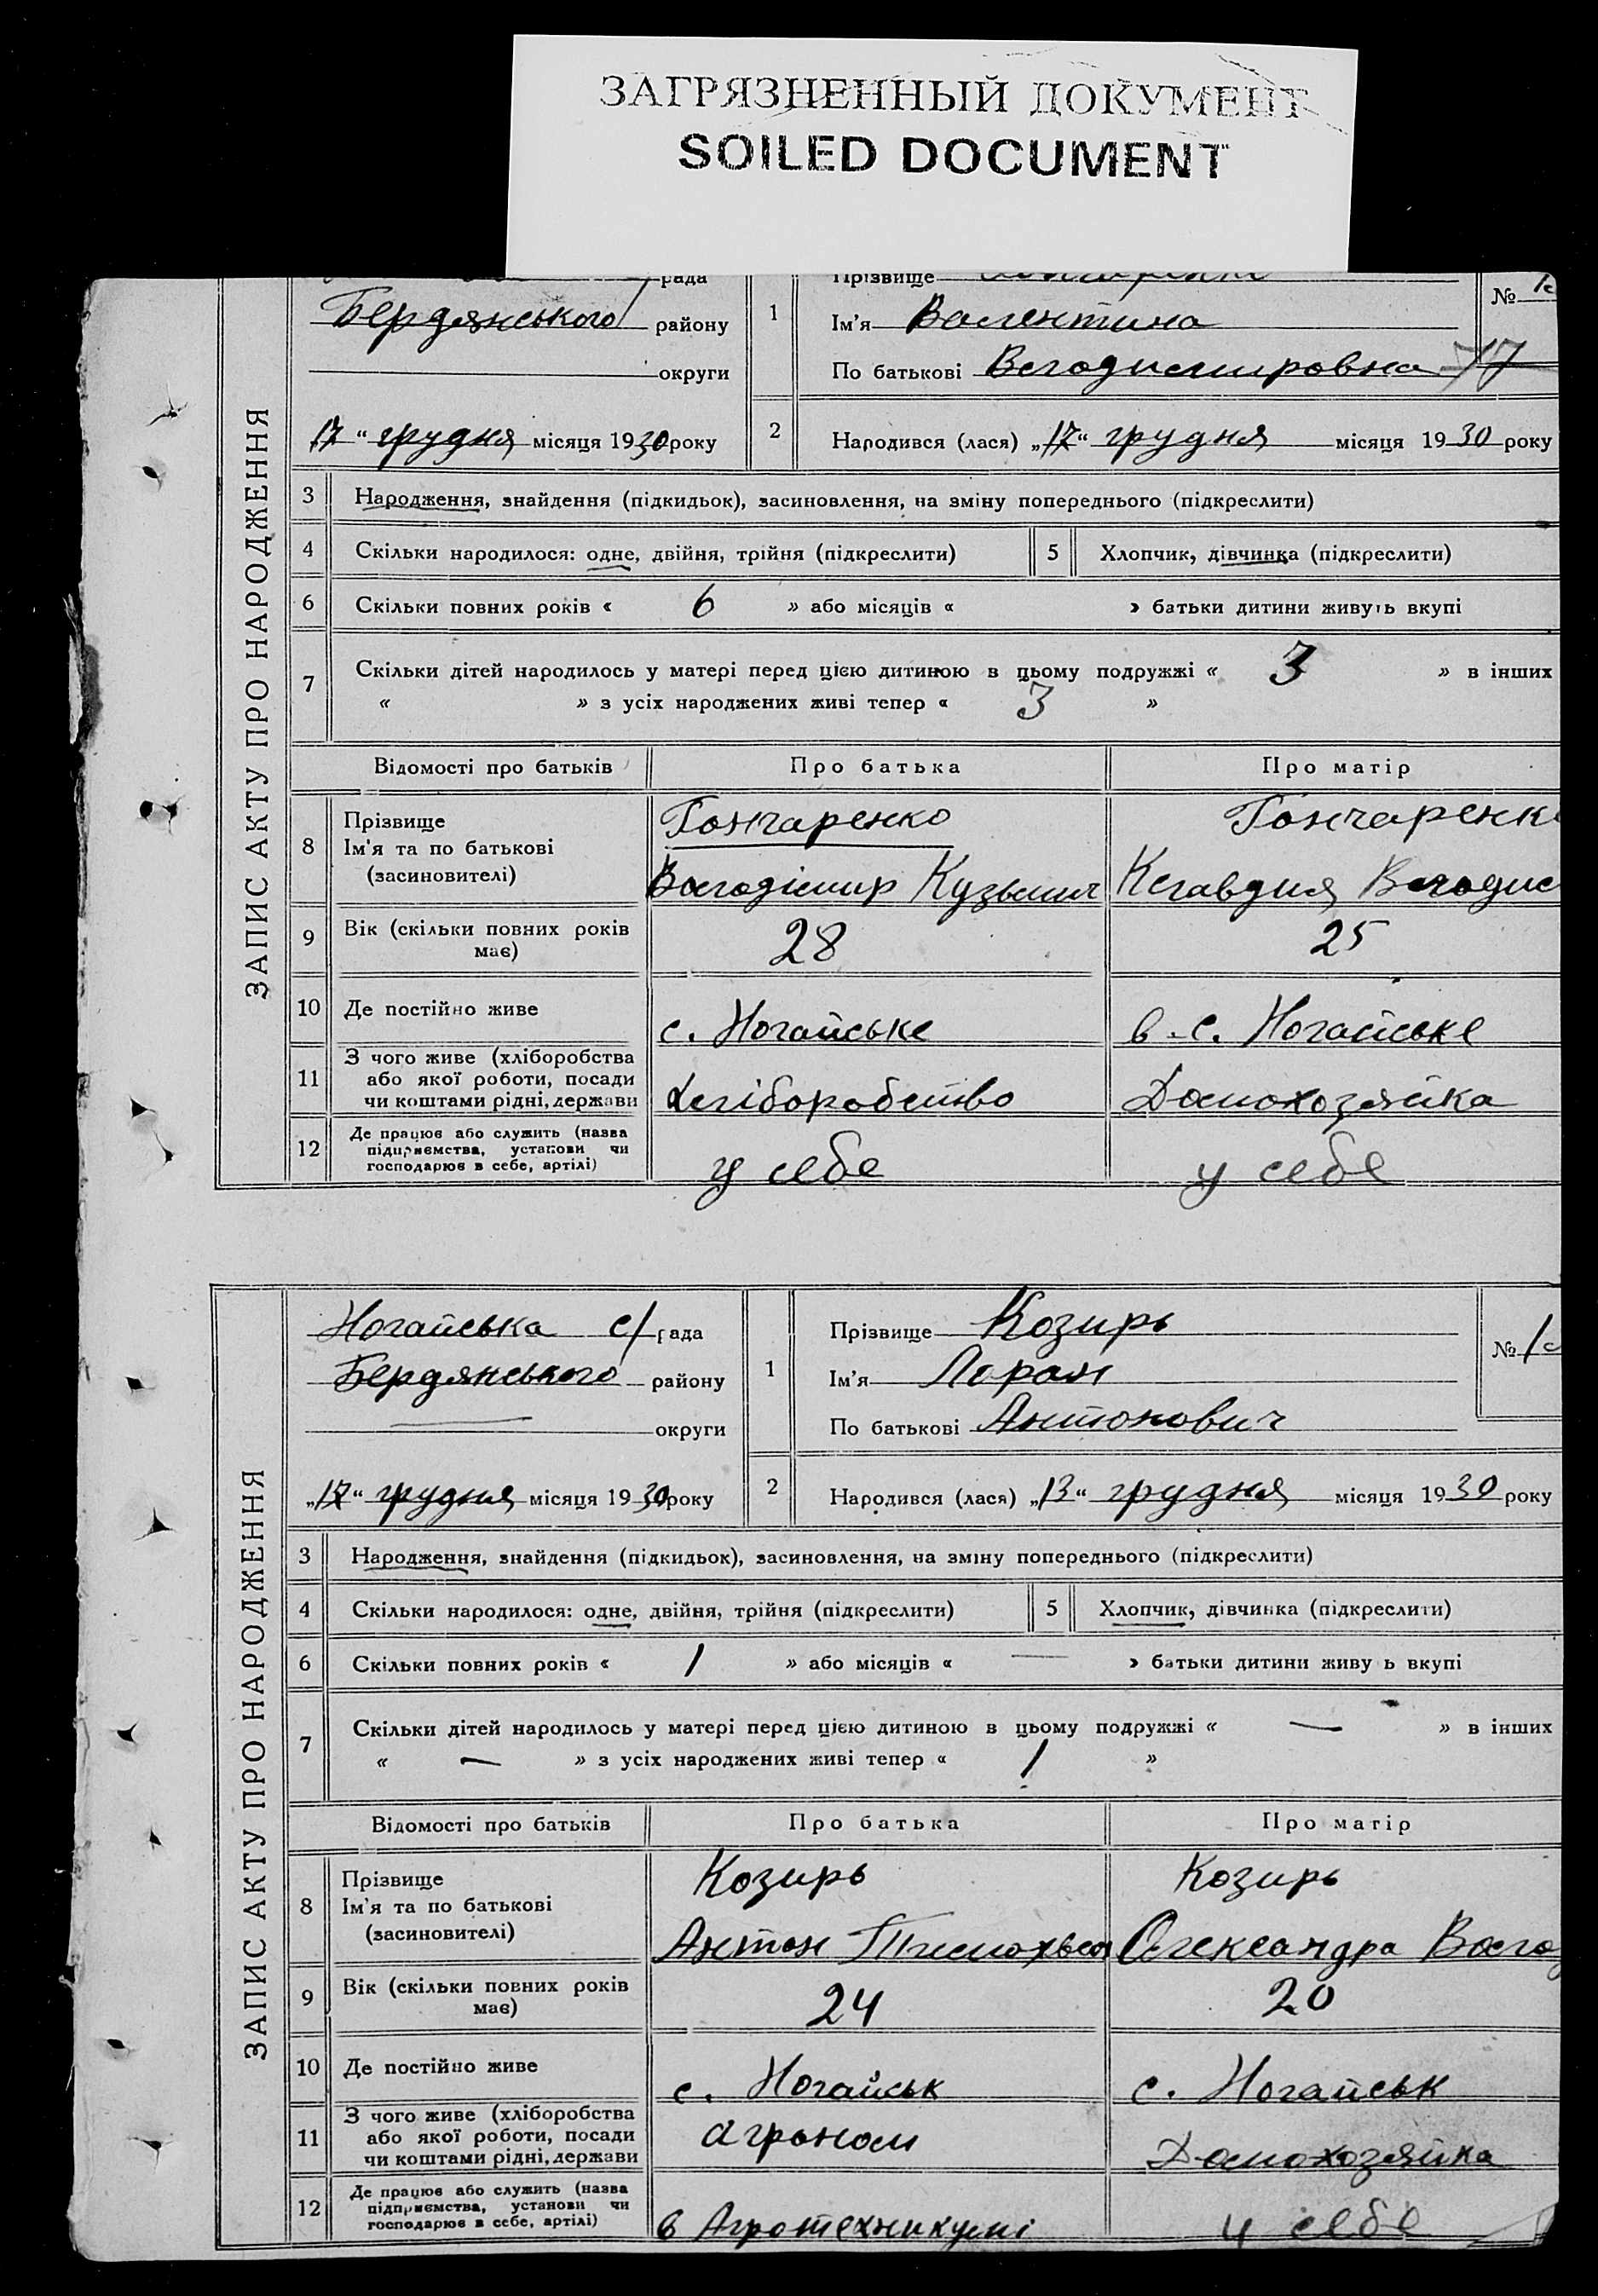 ЗАГРЯЗНЕННЫЙ ДОКУМЕНТ
SOILED DOCUMENT
ЗАПИС АКТУ ПРО НАРОДЖЕННЯ
рада
Бердянського району
округи
17 " грудня місяця 1930 року
1
Прізвище
Ім'я Валентина
По батькові Володимировна
№
77
2
Народився (лася) „17" грудня місяця 1930 року
3 Народження, знайдення (підкидьок), засиновлення, на зміну попереднього (підкреслити)
4 Скільки народилося: одне, двійня, трійня (підкреслити) 5 Хлопчик, дівчинка (підкреслити)
6 Скільки повних років « 6 » або місяців « » батьки дитини живуть вкупі
7 Скільки дітей народилось у матері перед цією дитиною в цьому подружжі « 3 » в інших
« » з усіх народжених живі тепер « 3 »
Відомості про батьків Про батька Про матір
8 Прізвище
Ім'я та по батькові
(засиновителі)
Гончаренко
Володімир Кузьмич
Гончаренк
Клавдия Володим
9 Вік (скільки повних років має) 28 25
10 Де постійно живе с. Ногайське в с. Ногайське
11 З чого живе (хліборобства
або якої роботи, посади
чи коштами рідні, держави
Хліборобство Домохозяйка
12 Де працює або служить (назва
підприємства, установи чи
господарює в себе, артілі)
у себе у себе
ЗАПИС АКТУ ПРО НАРОДЖЕННЯ
Ногайська с/рада
Бердянського району
округи
„17" грудня місяця 1930 року
1
Прізвище Козирь
Ім'я
По батькові Антонович
№
2
Народився (лася) „13" грудня місяця 1930 року
3 Народження, знайдення (підкидьок), засиновлення, на зміну попереднього (підкреслити)
4 Скільки народилося: одне, двійня, трійня (підкреслити) 5 Хлопчик, дівчинка (підкреслити)
6 Скільки повних років « 1 » або місяців « — » батьки дитини живу ь вкупі
7 Скільки дітей народилось у матері перед цією дитиною в цьому подружжі « — » в інших
« — » з усіх народжених живі тепер « 1 »
Відомості про батьків Про батька Про матір
8 Прізвище
Ім'я та по батькові
(засиновителі)
Козирь
Антон
Козирь
Олександра Воло
9 Вік (скільки повних років має) 24 20
10 Де постійно живе с. Ногайськ с. Ногайськ
11 З чого живе (хліборобства
або якої роботи, посади
чи коштами рідні, держави
агроном Домохозяйка
12 Де працює або служить (назва
підприємства, установи чи
господарює в себе, артілі)
в Агротехникумі у себе